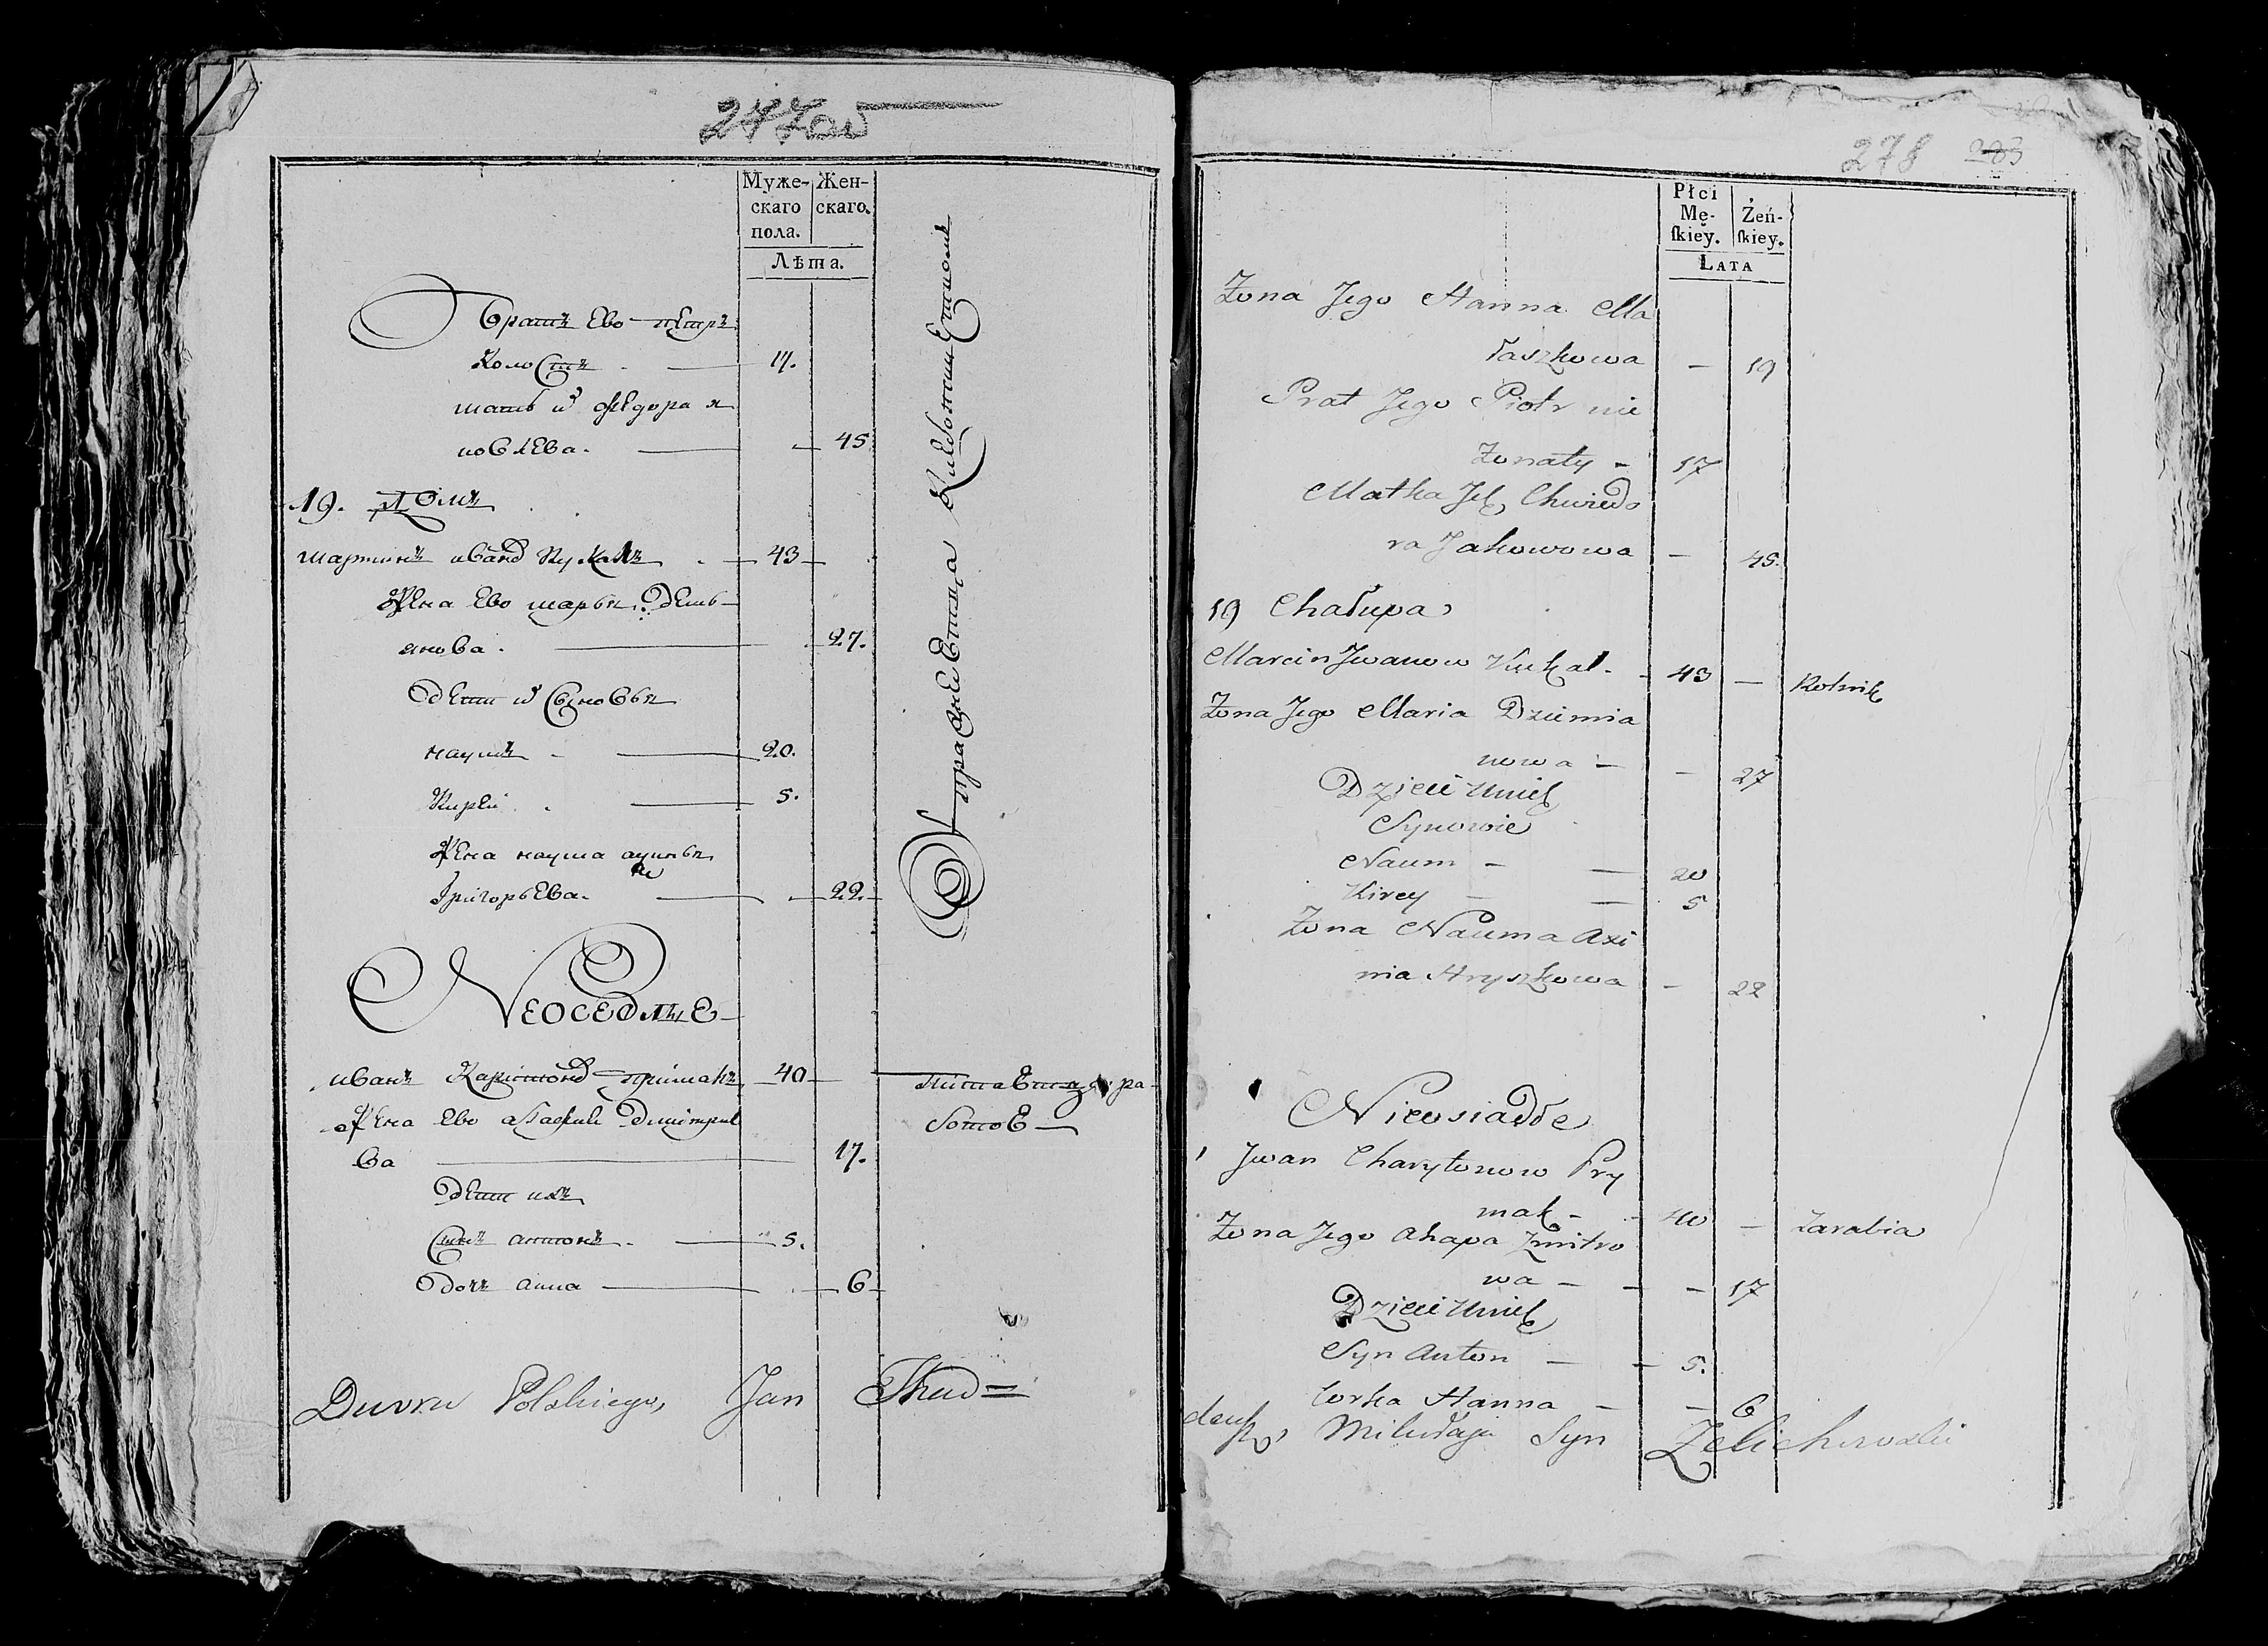 277 об
Муже-
скаго
пола.
Жен-
скаго.
Лѣта.
Братъ Ево петръ
холостъ 17.
мать их федора я
ковлева. 45
19. Домъ
мартинъ иванов кукалъ 43
Жена Ево марья демь-
янова. 27.
дети их сыновья
наумъ 20.
Кирѣи 5.
Жена наума аксинья
Григорьева. 22.
Неоседлые
иванъ Харитонов примакъ 40
Жена Ево агафия дмитрие
ва 17.
дети их
сынъ антонъ 5.
дочь анна 6
Упражняетца хлебопашеством
питаетца ра-
ботою
Dworu Polskiego, Jan Thad=
278 283
Płci
Mę-
skiey.
Żeń-
skiey.
LATA
Żona Jego Hanna Ma
łaszkowa — 19
Brat Jego Piotr nie
żonaty - 17
Matka Jch Chwiedo
ra Jakowowa — 45.
19 Chałupa
Marcin Jwanow Kukal - 43 — Rolnik
Żona Jego Maria Dziemia
nowa — — 27
Dzieci Unich
Synowie
Naum — — 20
Kirey — — 5
Żona Nauma Axi
nia Hryszkowa — 22
Nieosiadłe
Jwan Charytonow Pry
mak - 40 — Zarabia
Żona Jego Ahapa Zmitro
wa — — 17
Dzieci Unich
Syn Anton — 5.
Corka Hanna — — 6
deusz, Mikołaja Syn Zelichowski